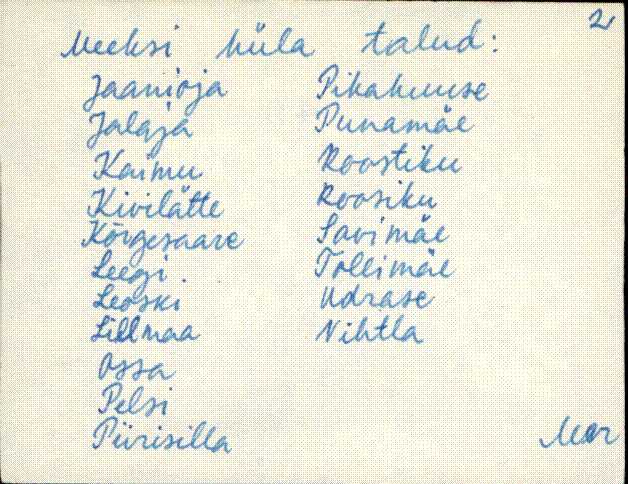 2
Meeksi küla talud:
Jaanioja
Jalaja
Kaimu
Kivilätte
Kõrgesaare
Leegi.
Leoski
Lillmaa
Ossa
Pelsi
Piirisilla
Pikakuuse
Punamäe
Roostiku
Roosiku
Savimäe
Tollimäe
Udrase
Vihtla